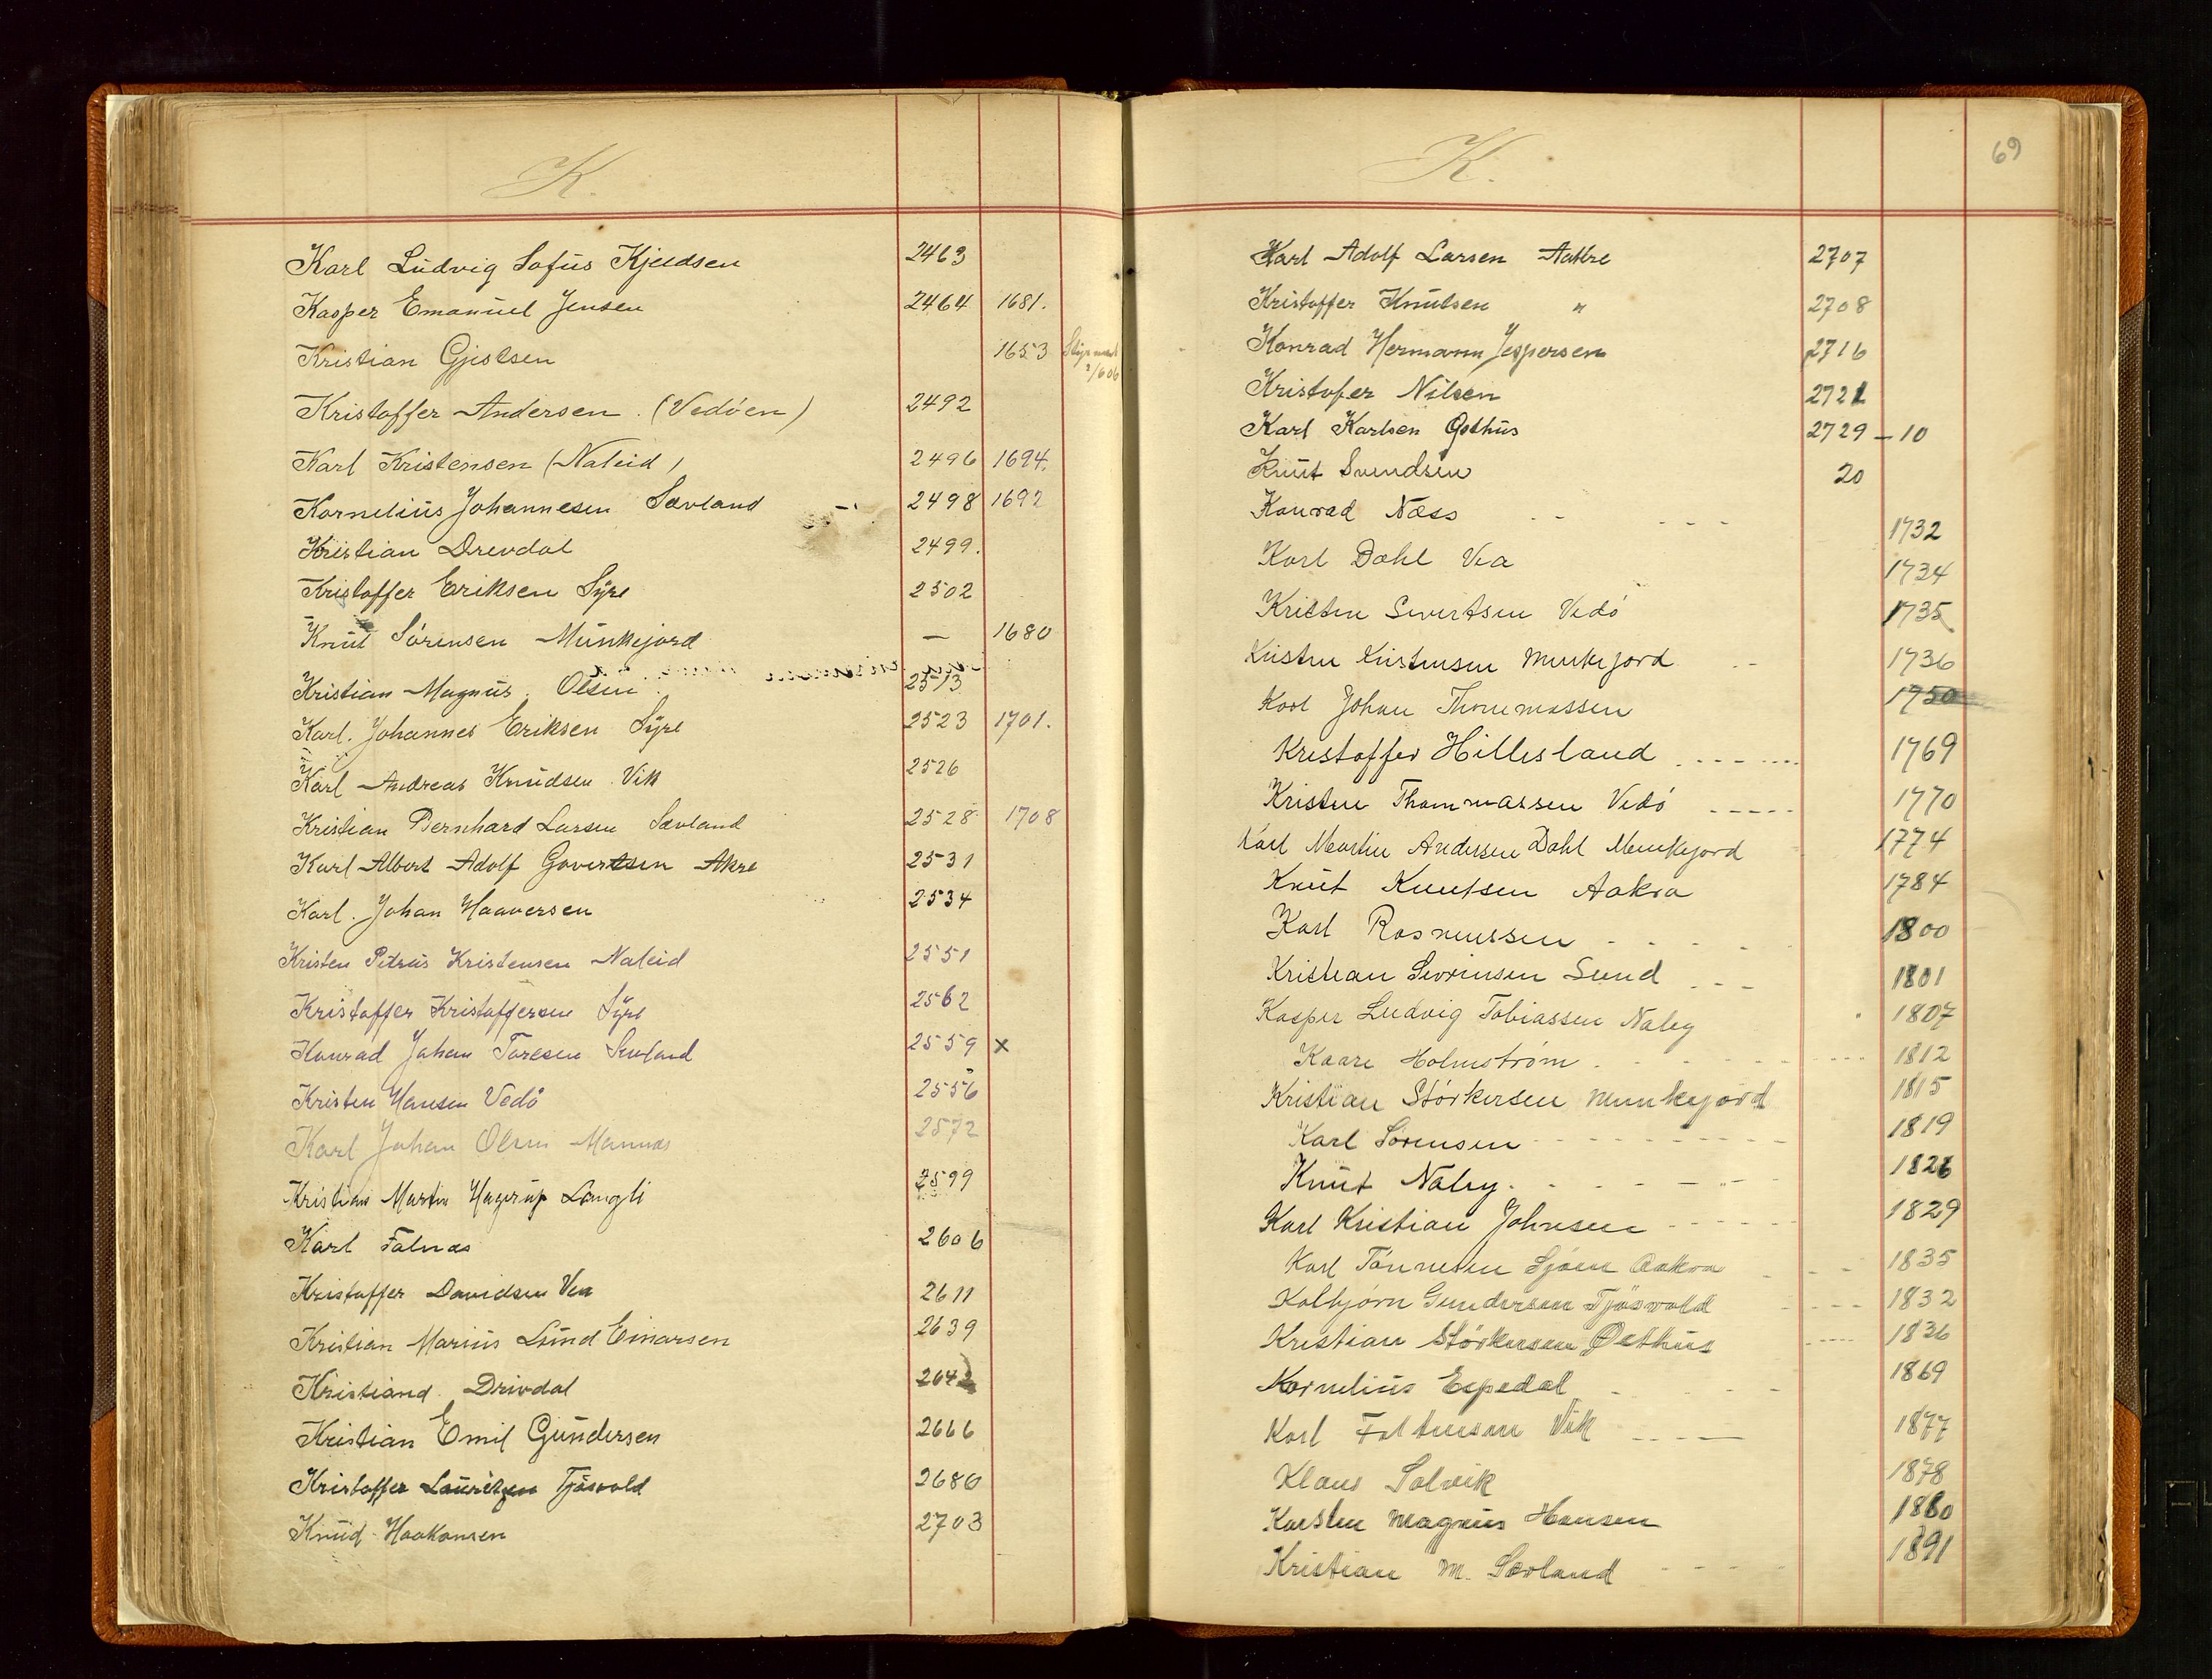 K.
Karl Ludvig Sofus Kjeldsen 2463
Kasper Emanuel Jensen 2464 1681.
Kristian Gjertsen 1653 Styrmand
Kristoffer Andersen. (Vedøen) 2492
Karl Kristensen (Naleid) 2496 1694.
Kornelius Johannesen Sævland 2498 1692
Kristian Drevdal 2499.
Kristoffer Eriksen Syre 2502
Knut Sørensen Munkejord — 1680
Kristian Magnus Olsen 2513
Karl. Johannes Eriksen Syre 2523 1701.
Karl Andreas Knudsen Vik 2526
Kristian Bernhard Larsen Sævland 2528 1708
Karl Albert Adolf Govertsen Akre 2531
Karl. Johan Haaversen 2534
Kristen Petrus Kristensen Naleid 2551
Kristoffer Kristoffersen Syre 2562
Konrad Johan Toresen Sævland 2559 x
Kristen Hansen Vedø 2556
Karl Johan Olsen Mannas 2572
Kristian Martin Hagerup Langli 2599
Karl Falnas 2606
Kristoffer Davidsen Vea 2611
Kristian Marius Lund Einarsen 2639
Kristiand Drivdal 2642
Kristian Emil Gundersen 2666
Kristoffer Lauritzen Tjøsvold 2680
Knud Haakonsen 2703
K. 69
Karl Adolf Larsen Aakre 2707
Kristoffer Knutsen " 2708
Konrad Hermann Jespersen 2716
Kristofer Nilsen 2721
Karl Karlsen Østhus 2729 – 10
Knut Svendsen 20
Konrad Næss 1732
Karl Dahl Vea 1734
Kristen Sivertsen Vedø 1735
Kristen Kristensen Munkejord 1736
Karl Johan Thommassen 1750
Kristoffer Hillesland 1769
Kristen Thommassen Vedø 1770
Karl Martin Andersen Dahl Munkejord 1774
Knut Knutsen Aakra 1784
Karl Rasmussen 1800
Kristian Severinsen Sund 1801
Kasper Ludvig Tobiassen Naley 1807
Kaare Holmstrøm 1812
Kristian Størkersen Munkejord 1815
Karl Sørensen 1819
Knut Naley 1826
Karl Kristian Johnsen 1829
Karl Tønnesen Sjøen Aakra 1835
Kolbjørn Gundersen Tjøsvold 1832
Kristian Størkersen Østhus 1836
Kornelius Espedal 1869
Karl Vik 1877
Klaus Solvik 1878
Karsten Magnus Hansen 1880
Kristian M. Sævland 1891